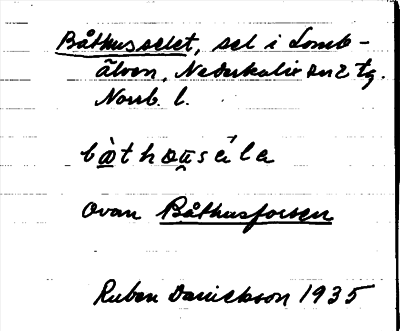 Båthusselet, sel i Lomb-
älven, Nederkalix tg.
Norrb. l.
båthau̯séla
Ovan Båthusforsen
Ruben Danielsson 1935